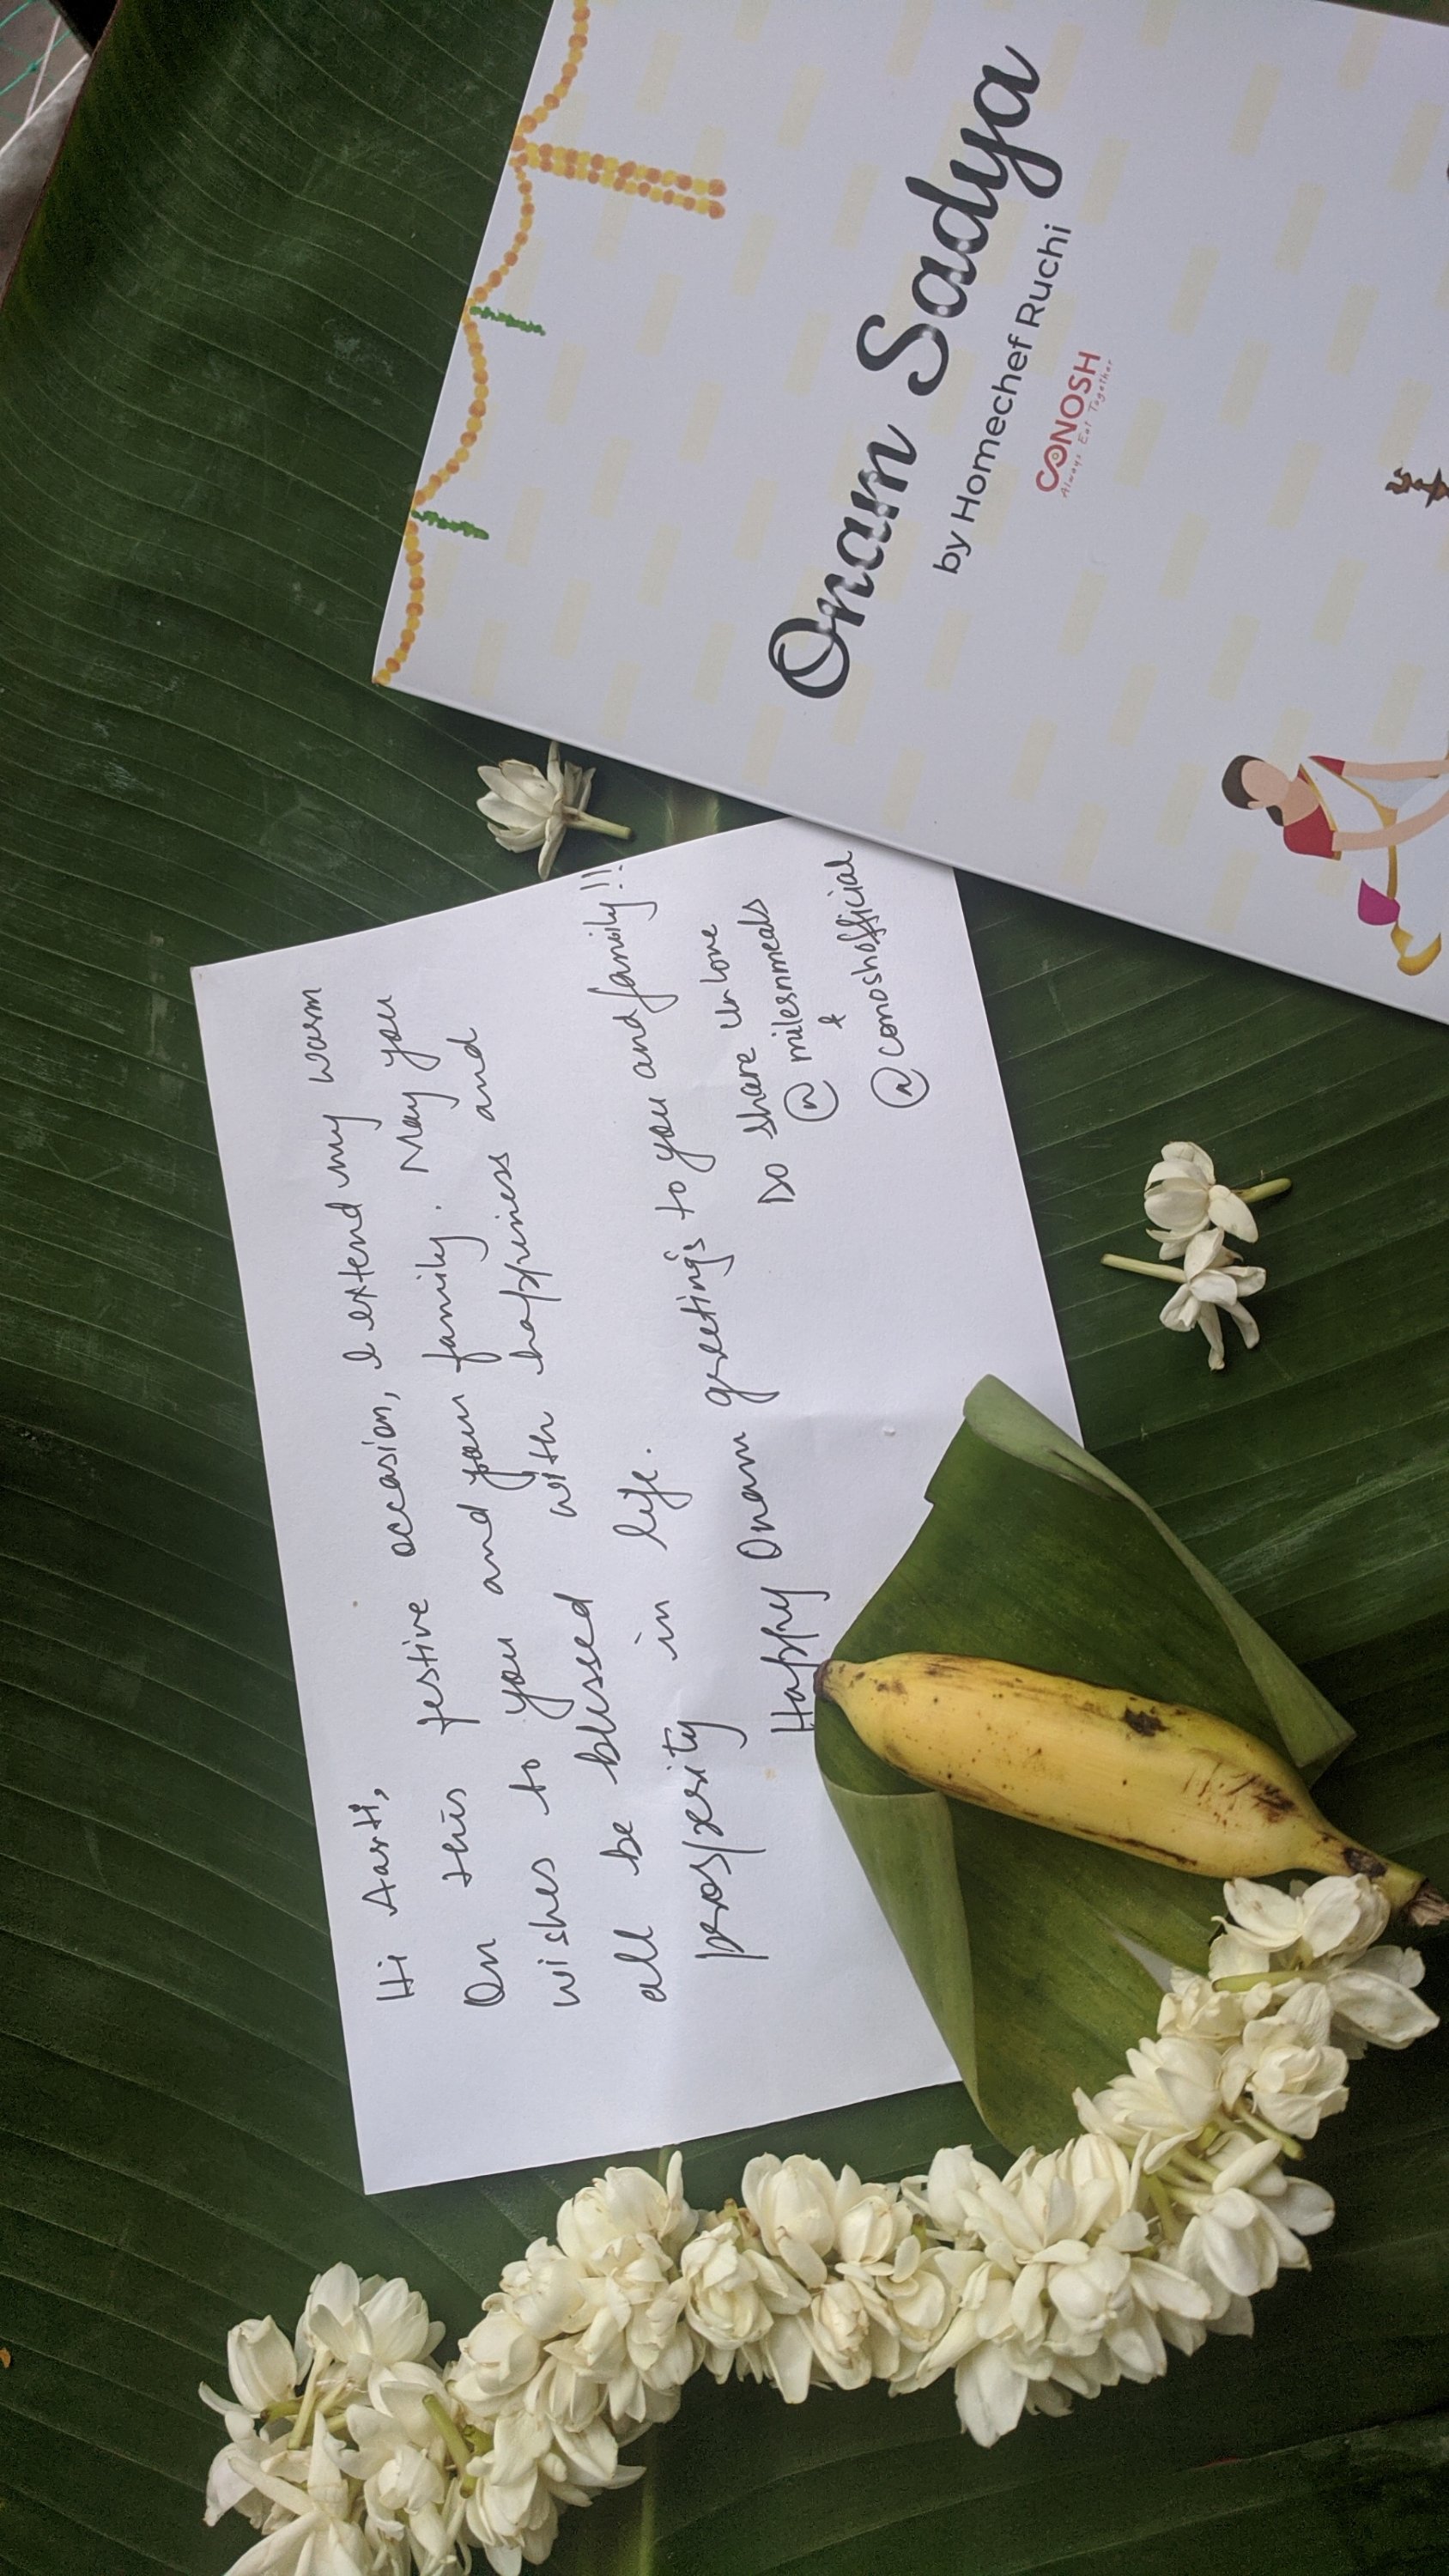 Onam Sadya
by Homechef Ruchi
CONOSH
Always Eat Together
Hi Aarti,
On this festive occasion, I extend my warm
wishes to you and your family. May you
all be blessed with happiness and
prosperity in life.
Happy Onam greetings to you and family!!
Do share ur love
@milesnmeals
&
@conoshofficial